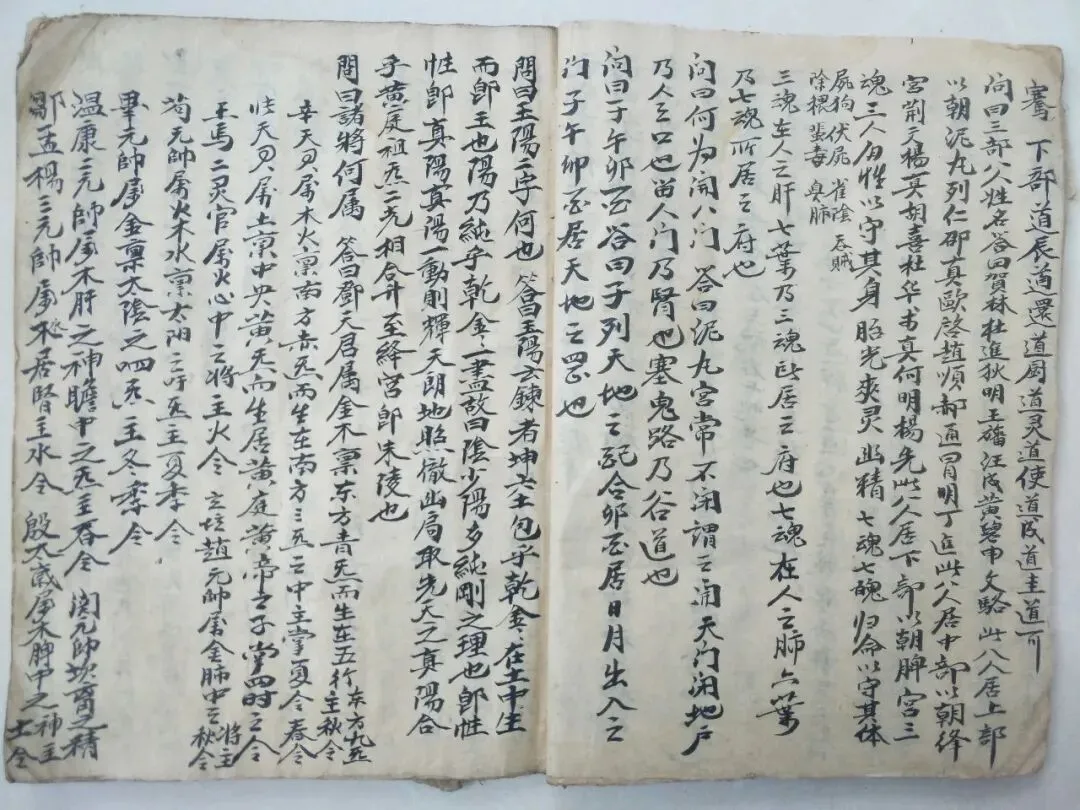 騫 下部 道辰 道還 道厨 道灵 道使 道成 道主 道可
问曰三部八人姓名答曰賀林杜進狄明王旛汪成黄碧申文駱此八人居上部
以朝泥丸列仁邵真歐啓趙順郝通冒明丁進此八人居中部以朝绛
宫荆元楊冥胡熹杜华书真何明楊先此八人居下部以朝脾宫三
魂三人勿性以守其身胎光爽灵幽精七魂七魄归命以守其体
屍狗伏屍 雀陰 吞賊
除穢 蜚毒 臭肺
三魂在人之肝七葉乃三魂所居之府也七魂在人之肺六葉
乃七魂所居之府也
问曰何为開八门 答曰泥丸宫常不闭謂之開天门闭地户
乃人之口也畄人门乃腎也塞鬼路乃谷道也
问曰子午卯酉答曰子列天地之配合卯酉居日月出入之
门子午卯酉居天地之四也
問曰玉陽二字何也 答曰玉陽方鍊者坤六土包乎乾金在土中生
而即王也陽乃純乎乾金之一盡故曰陰少陽多純剛之理也即性
性即真陽真陽一動則輝天朗地照徹出局取先天之真陽合
乎黄庭祖炁二炁相合升至絳宫即朱陵也
問曰諸將何属 答曰鄧天君属金木禀东方青炁而生在五行 东方九炁 主秋令
辛天君属木火禀南方赤炁而生在南方三炁之中主掌夏令春令
張天君属土禀中央黄炁而生居黄庭黄帝之子掌四时之令
王馬二灵官属火心中之将主火令 玄坛趙元帥属金肺中之将主秋令
苟元帥属火木水禀太阳之吁炁主夏季令
畢元帥属金禀太陰之呬炁主冬季令
温康二元帥属木肝之神膽中之炁主春令 関元帥坎宫之精
鄒孟楊三元帥属水居腎主水令 殷太歲属木脾中之神主土令